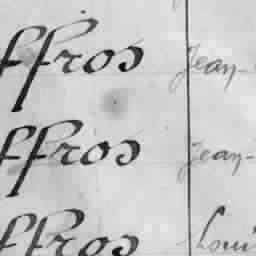 ffros Jean-
ffros Jean-
ffros Loui